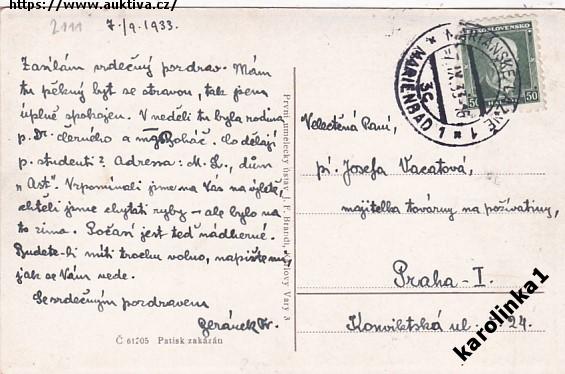 https://www.auktiva.cz/
2111
7./9.1933.
Zasílám srdečný pozdrav. Mám
tu pěkný byt se stravou, tak jsem
úplně spokojen. V neděli tu byla rodina
p. Dr. černého a mg Boháč. Co dělají
p. studenti? Adressa: M. L., dům
"Ast". Vzpomínali jsme na Vás na výletě,
chtěli jsme chytati ryby - ale bylo na
to zima. Počasí jest teď nádherné.
Budete-li míti trochu volno, napište mi,
jak se Vám vede.
Se srdečným pozdravem
Beránek W.
Č 61705 Patisk zakázán
První umělecký ústav J. F. Brandt, Karlovy Vary 3
ČESKOSLOVENSKO
50 50
MARIÁNSKÉ LÁZNĚ 1
MARIENBAD 1
3c
Velectěná Paní,
pí. Josefa Vacatová,
majitelka továrny na poživatiny,
Praha - I.
Konviktská ul. č. 24.
karolinka1